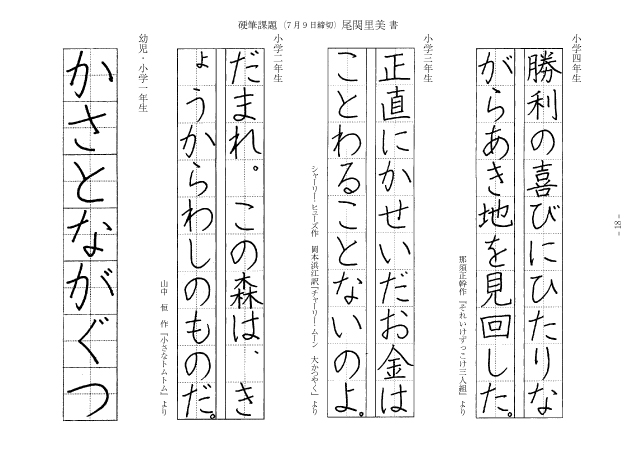 硬筆課題（7月9日締切）尾関里美 書
小学四年生
勝利の喜びにひたりな
がらあき地を見回した。
那須正幹作『それいけずっこけ三人組』より
小学三年生
正直にかせいだお金は
ことわることないのよ。
シャーリー・ヒューズ作 岡本浜江訳『チャーリー・ムーン 大かつやく』より
小学二年生
だまれ。この森は、き
ょうからわしのものだ。
山中 恒 作『小さなトムトム』より
幼児・小学一年生
かさとながぐつ